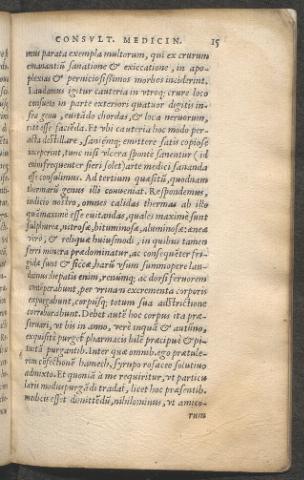 CONSVLT. MEDICIN. 15
mus parata exempla multorum, qui ex crurum
emanantiũ sanatione & exiccatione, in apo-
plexias & perniciosissimos morbos inciderint.
Laudamus igitur cauteria in vtroq; crure loco
consueto in parte exteriori quatuor digitis in-
fra genu, euitãdo chordas, & loca neruorum,
rite esse faciẽda. Et vbi cauteria hoc modo per-
acta destillare, saniẽmq; emittere satis copiose
inceperint, tunc nisi vlcera sponte sanentur (id
enim frequenter fieri solet) arte medici sananda
esse consulimus. Ad tertium quæsitũ, quodnam
thermarũ genus illi conueniat. Respondemus,
iudicio nostro, omnes calidas thermas ab illo
quàm maximè esse euitandas, quales maximè sunt
sulphurea, nitrosæ, bituminosæ, aluminosæ: æneæ
verò, & reliquæ huiusmodi, in quibus tamen
ferri minera prædominatur, ac consequẽter fri-
gidæ sunt & siccæ, harũ vsum summopere lau-
damus: hepatis enim, renumq; ac dorsi feruorem
contẽperabunt, per vrinam excrementa corporis
expurgabunt, corpusq; totum sua adstrictione
corroborabunt. Debet autẽ hoc corpus ita præ-
seruari, vt bis in anno, verè inquã & autũno,
exquisitè purget pharmacis bilẽ præcipuè & pi-
tuitã purgantib. Inter quæ omnib. ego prætule-
rim cõfectionẽ hamech, syrupo rosaceo solutiuo
admixto. Et quoniã à me requiritur, vt particu-
larẽ modũ purgãdi tradã, licet hoc præsentib.
medicis esset dimittẽdũ, nihilominus, vt amico-
rum